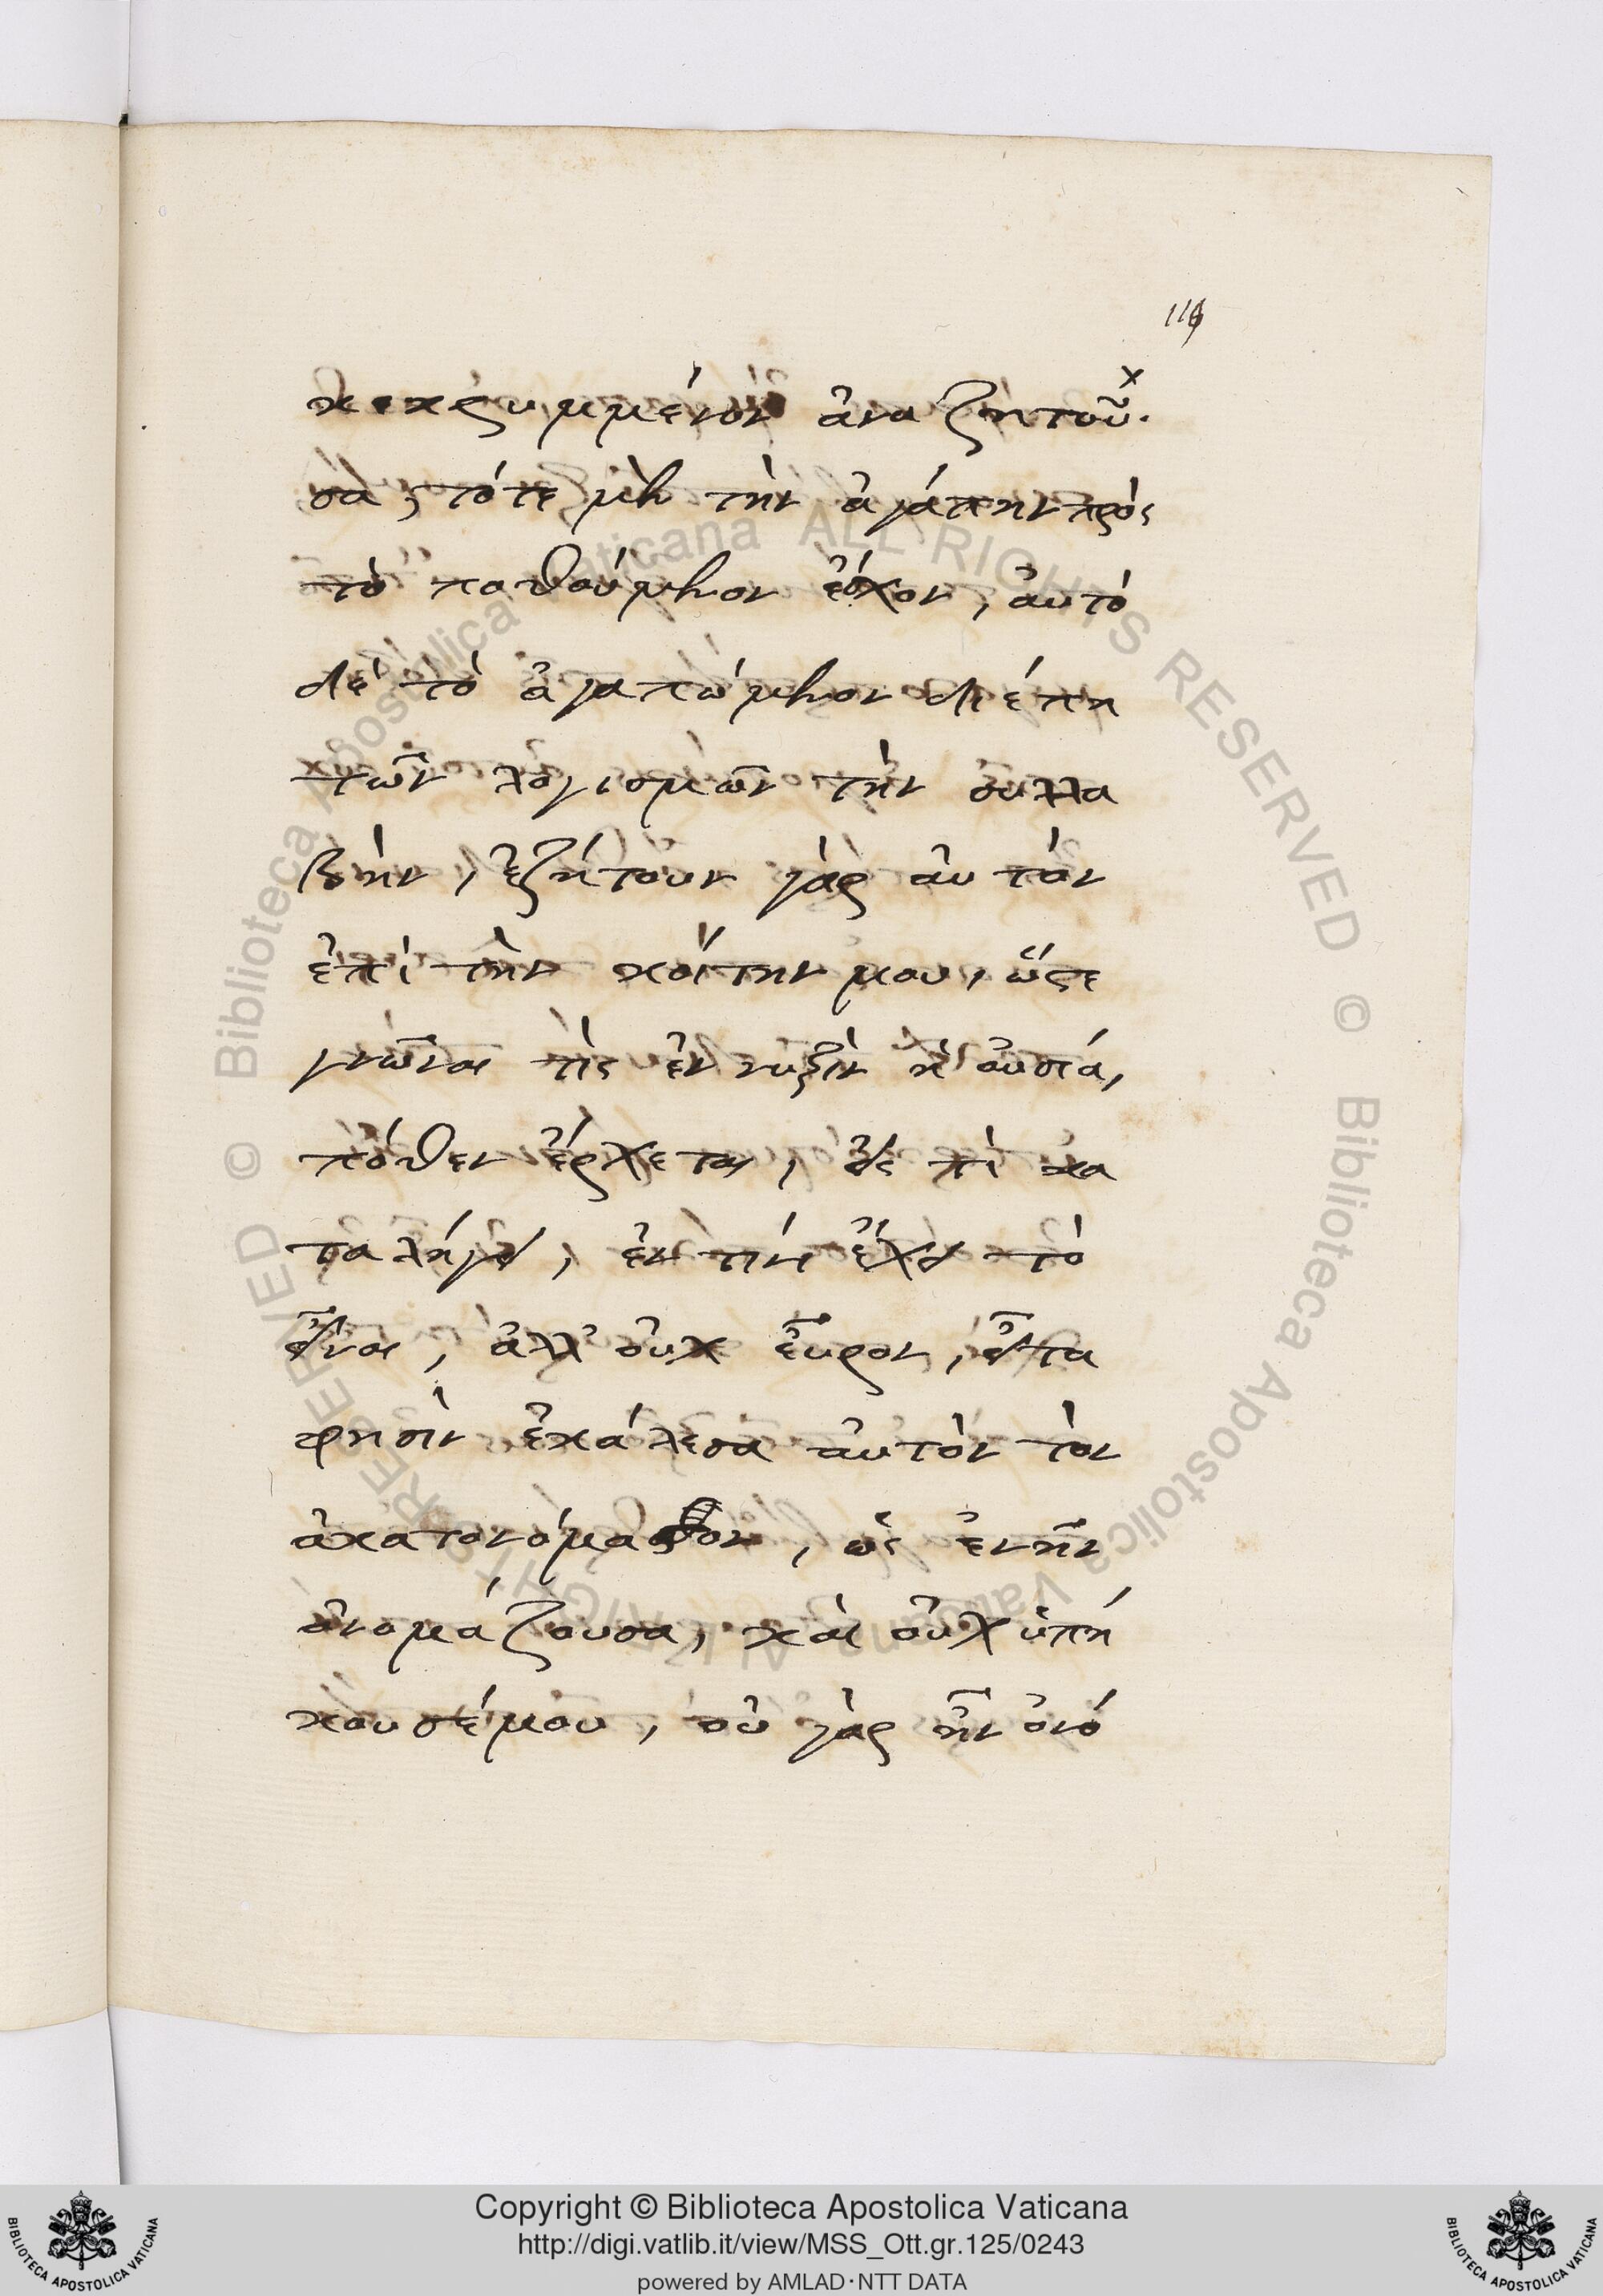 116
κεκρυμμένον ἀναζητοῦ
σα, τότε μὲν τὴν ἀγάπην πρὸς
τὸ ποθούμενον ἔσχον, αὐτὸ
δὲ τὸ ἀγαπώμενον διέπτη
τῶν λογισμῶν τὴν συλλα
βήν, ἐζήτουν γὰρ αὐτὸν
ἐπὶ τὴν κοίτην μου, ὥστε
γνῶναι τίς ἡ οὐσία,
πόθεν ἔρχεται, εἰς τί κα
ταλήγει, ἐν τίνι ἔχει τὸ
εἶναι, ἀλλ' οὐχ εὗρον, εἶτα
φησὶν ἐκάλεσα αὐτὸν τὸν
ἀκατονόμαστον, ὡς ἐνῆν
ὀνομάζουσα, καὶ οὐχ ὑπή
κουσέ μου, οὐ γὰρ ἦν ὀνό
Copyright © Biblioteca Apostolica Vaticana
http://digi.vatlib.it/view/MSS_Ott.gr.125/0243
powered by AMLAD·NTT DATA
BIBLIOTECA APOSTOLICA VATICANA
BIBLIOTECA APOSTOLICA VATICANA
© Biblioteca Apostolica Vaticana ALL RIGHTS RESERVED
© Biblioteca Apostolica Vaticana ALL RIGHTS RESERVED